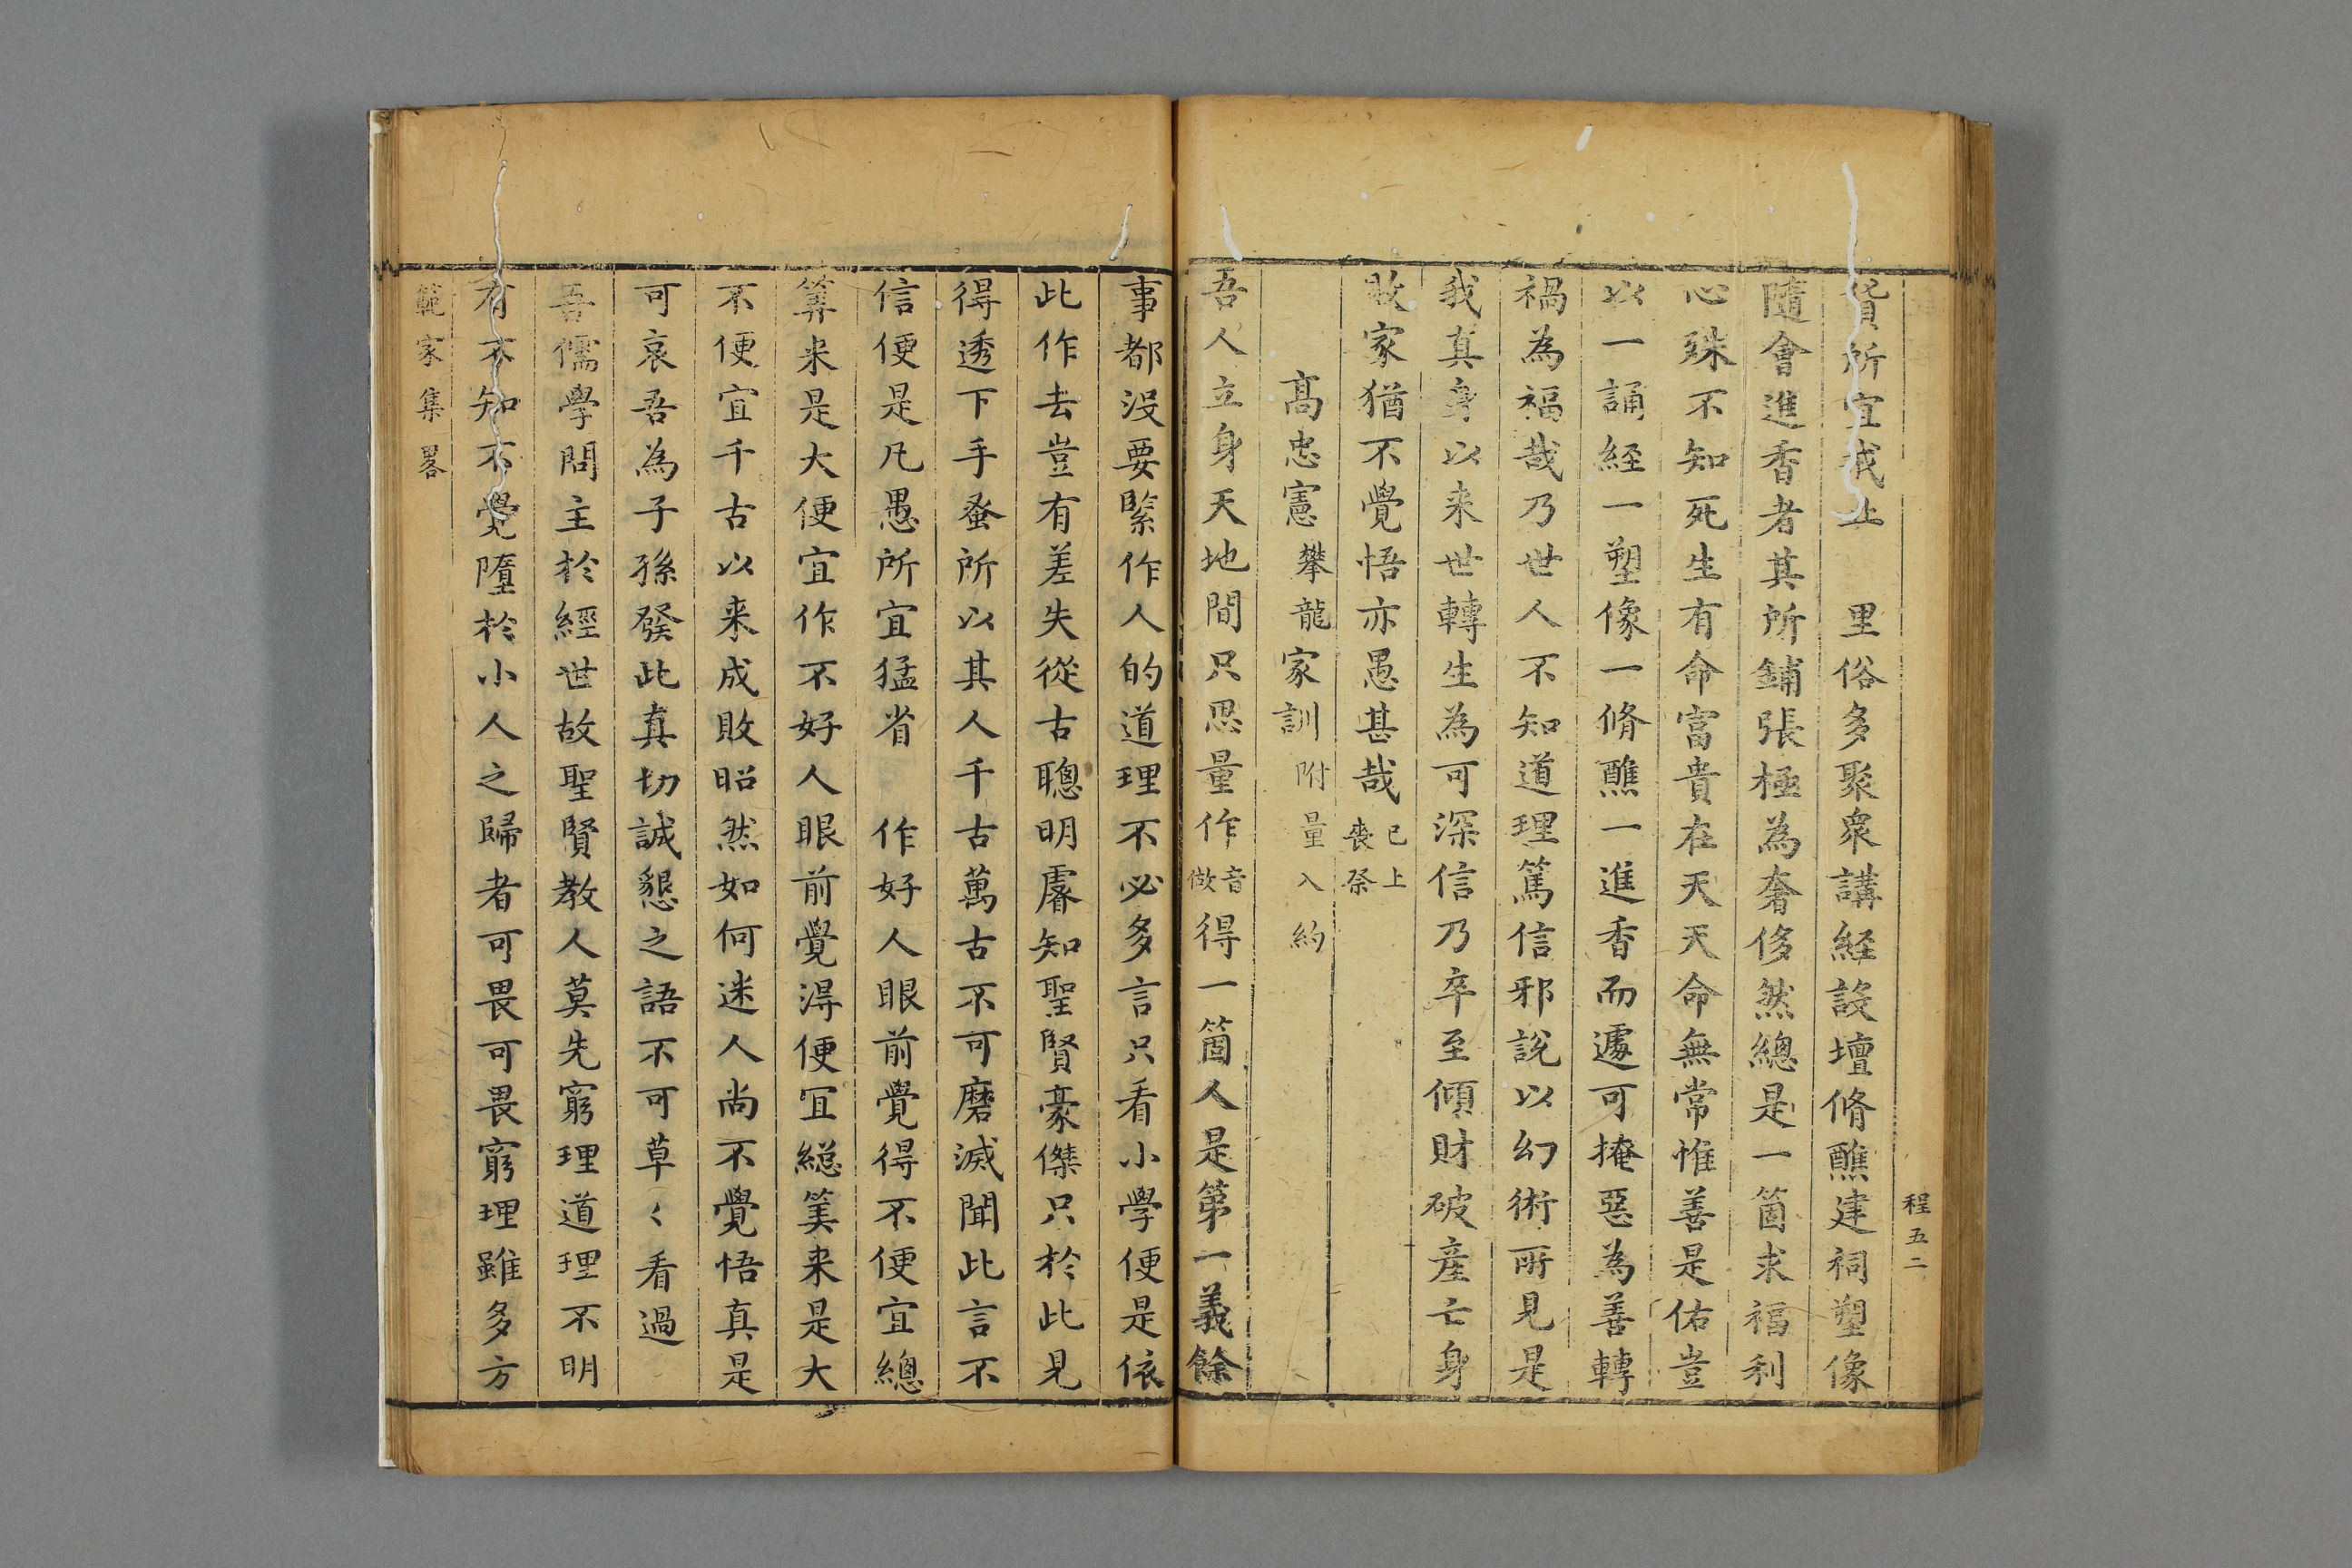 程五二
貲所宜戒止　里俗多聚衆講経設壇脩醮建祠塑像
隨會進香者其所鋪張極為奢侈然總是一箇求福利
心殊不知死生有命富貴在天天命無常惟善是佑豈
以一誦経一塑像一脩醮一進香而遽可掩惡為善轉
禍為福哉乃世人不知道理篤信邪說以幻術所見是
我真身以来世轉生為可深信乃卒至傾財破産亡身
敗家猶不覺悟亦愚甚哉已上喪祭
高忠憲攀龍家訓附量入約
吾人立身天地間只思量作音做得一箇人是第一義餘
事都没要緊作人的道理不必多言只看小學便是依
此作去豈有差失從古聰明睿知聖賢豪傑只於此見
得透下手蚤所以其人千古萬古不可磨滅聞此言不
信便是凡愚所宜猛省　作好人眼前覺得不便宜總
算来是大便宜作不好人眼前覺得便宜総筭来是大
不便宜千古以来成敗昭然如何迷人尚不覺悟真是
可哀吾為子孫發此真切誠懇之語不可草〻看過
吾儒學問主於經世故聖賢教人莫先窮理道理不明
有不知不覺墮於小人之歸者可畏可畏窮理雖多方
範家集畧